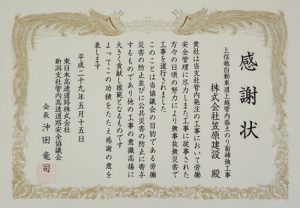 感謝状
上信越自動車道上越管内盛土のり面補強工事
株式会社笠原建設 殿
貴社は当支社管内発注の工事において労働
安全管理に尽力しまた工事に従事された
方々の日頃の努力により無事故無災害で
工事を遂行されました
このことは当協議会の目的である労働
災害の防止並びに公衆災害の防止に寄与
するものであり他の工事の意識高揚に
大きく貢献し模範となるものです
よってこの功績をたたえ感謝の意を
表します
平成二十九年五月十五日
東日本高速道路株式会社
新潟支社管内高速道路安全協議会
会長 沖田竜司